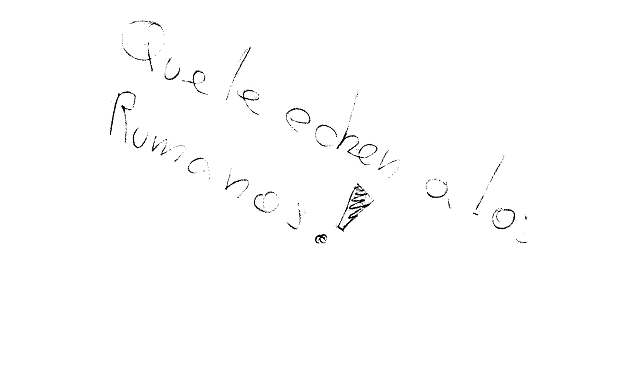 Que le echen a los
Rumanos.!